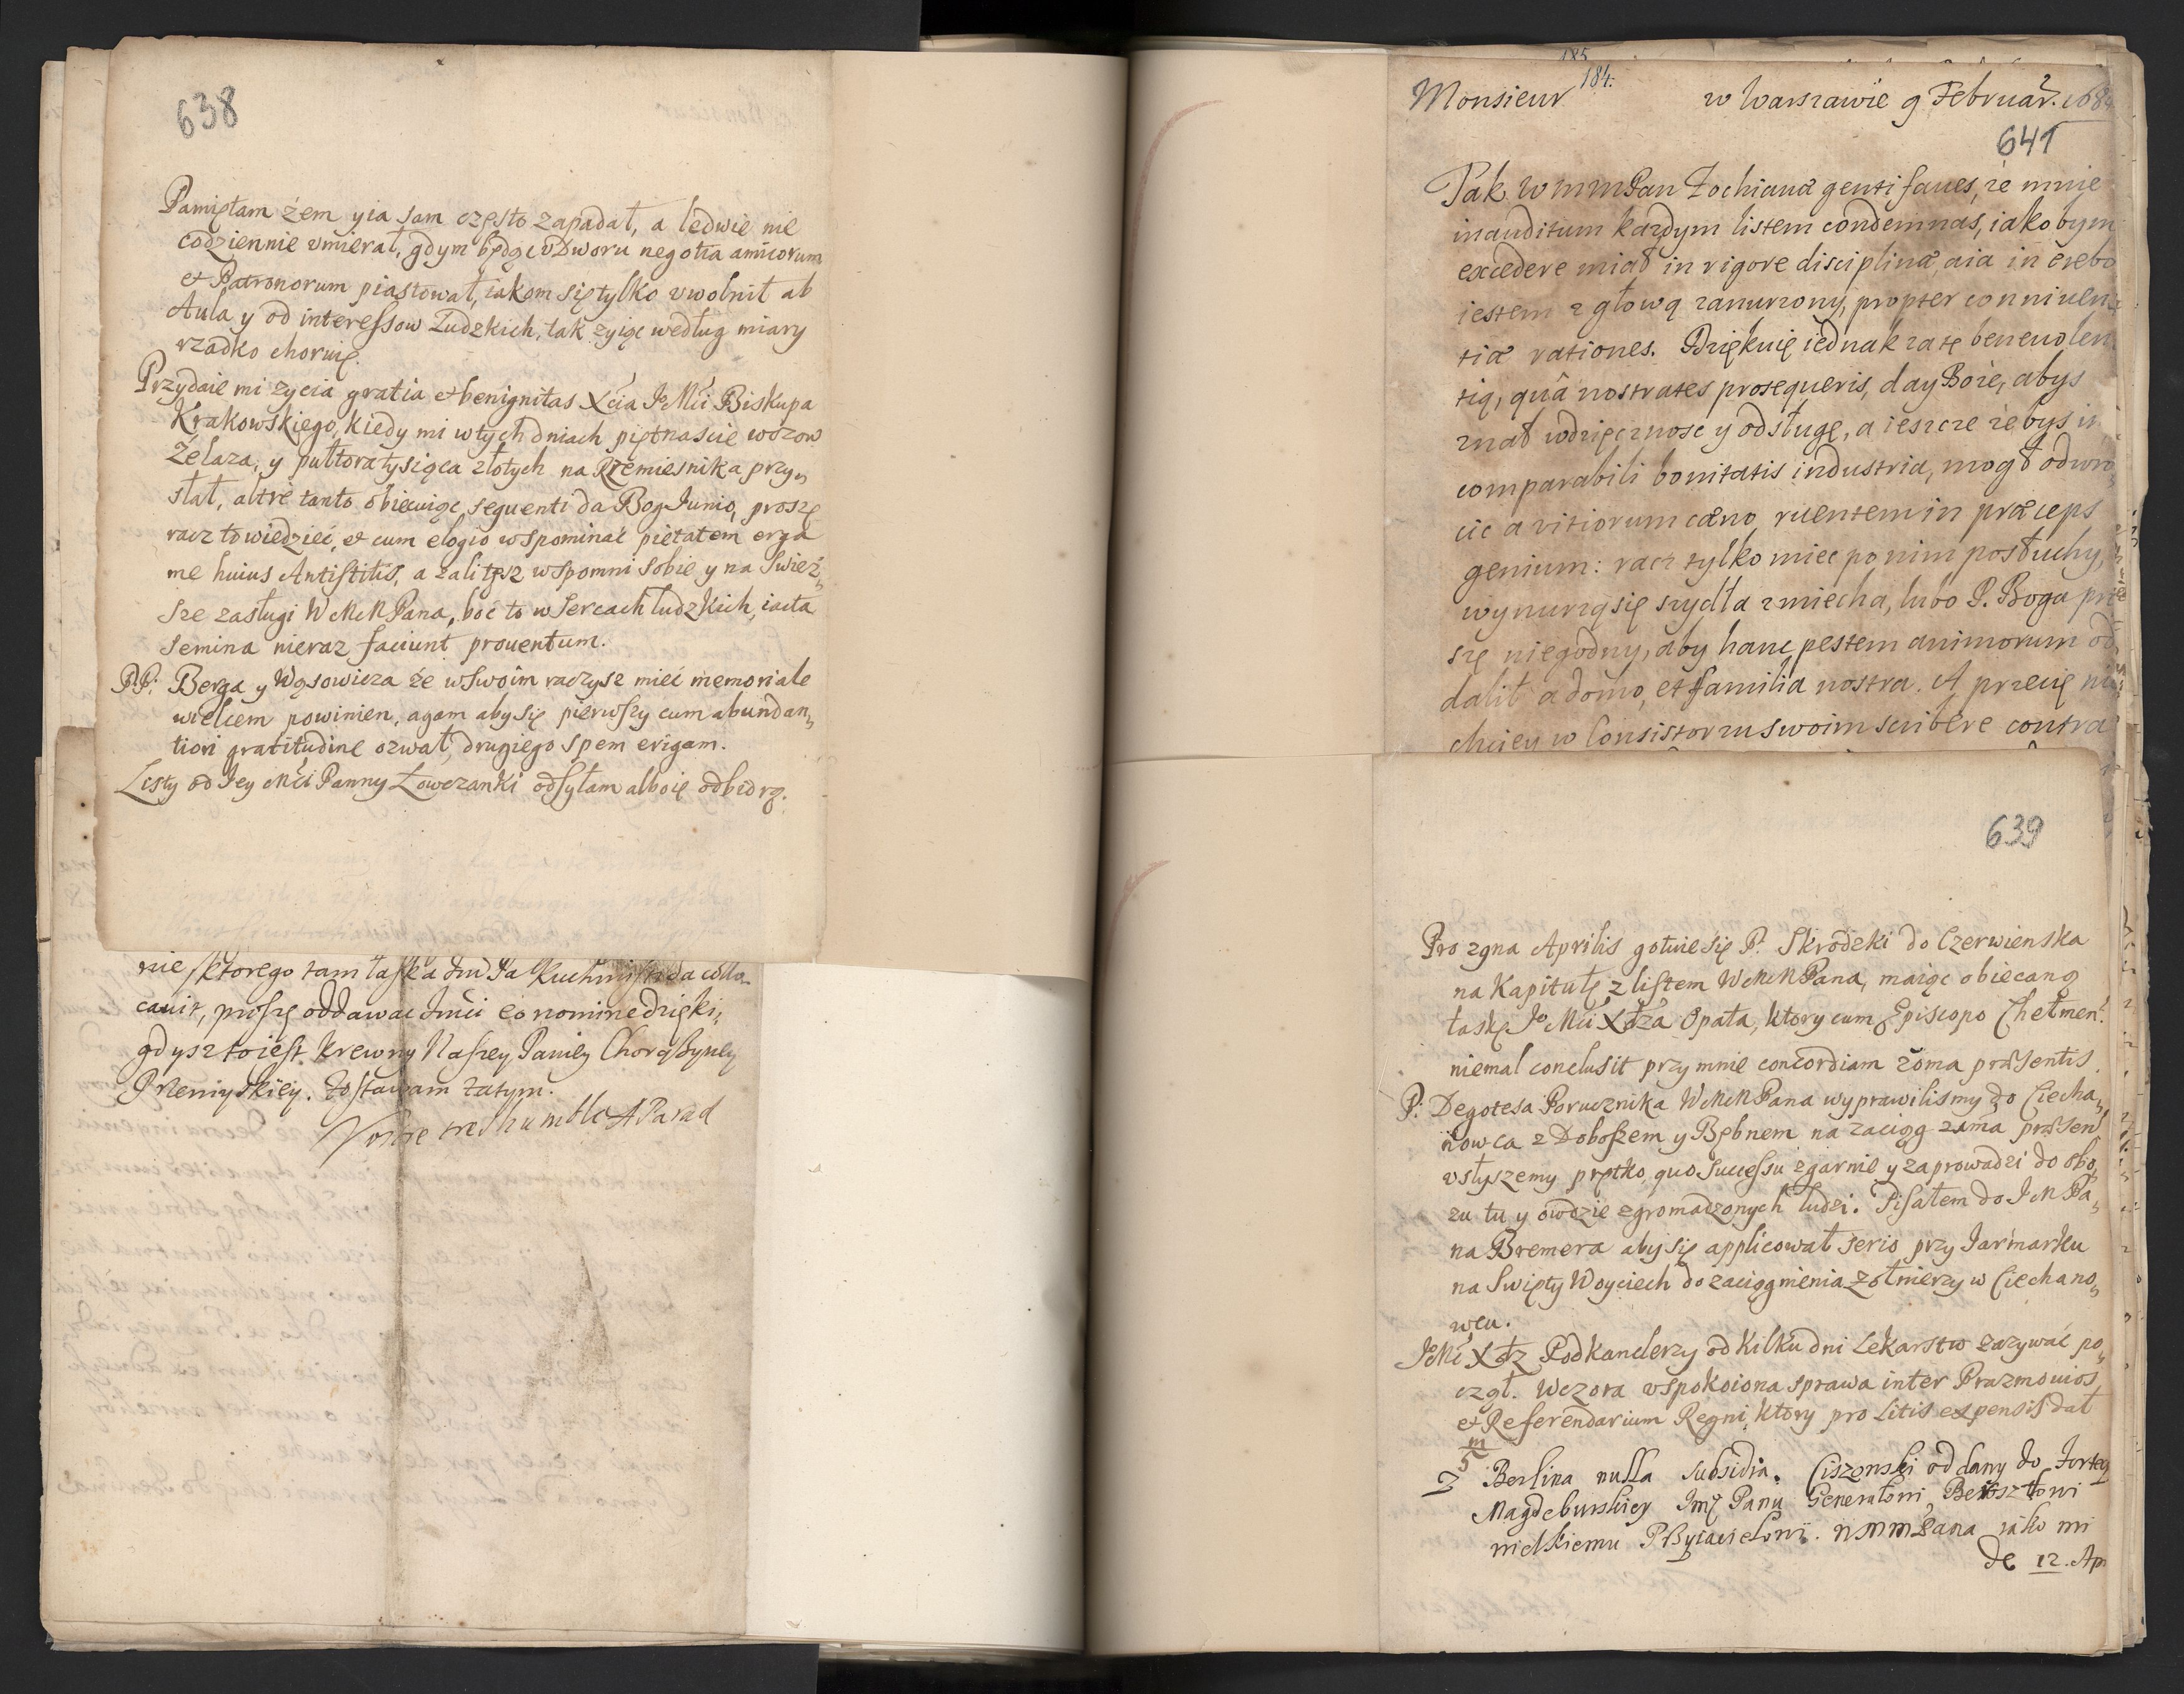 638
Pamiętam żem y ia sam często zapadał, a ledwie nie
codziennie vmierał, gdym będąc v Dworu negotia amicorum
et Patronorum piastował, iakom się tylko vwolnił ab
Aula y od interessow Ludzkich, tak żyiąc według miary
rzadko choruię.
Przydaie mi życia gratia et benignitas Xcia Je Mći Biskupa
Krakowskiego, kiedy mi w tych dniach piętnascie wozow
Żelaza, y pułtora tysiąca złotych na Rzemiesnika przy„
słał, altre tanto obiecuiąc sequenti da Bog Junio, proszę
racz to wiedzieć, et cum elogio wspominać pietatem erga
me huius Antistitis, a zali tesz wspomni sobie y na swież„
sze zasługi WMMPana, boć to w sercach ludzkich, iacta
semina nieraz faciunt prouentum.
PP: Berga y Wąsowicza że w swoim raczysz mieć memoriale
wielcem powinien, agam aby się pierwszy cum abundan„
tiori gratitudine ozwał, drugiego spem erigam.
Listy od Jey Mći Panny Łowczanki odsyłam alboię odbiorą.
nie ktorego tam łaska Jmć Pa Kuchmistrza collo„
cauit, proszę oddawac Jmći eo nomine dzięki,
gdysz to iest krewny Naszey Paniey Chorążyney
Przemyskiey. Zostawam zatym.
Vostre tres humble A Parad
185
184.
Monsieur w Warszawie 9 Februar. 168
641
Tak WMMPan Zochiana genti faues, że mnie
inauditum każdym listem condemnas, iakobym
excedere miał in rigore disciplinæ, a ia in erebo
iestem z głową zanurzony, propter conniuen„
tiæ rationes. Dziękuię iednak za tę beneuolen„
tią, quâ nostrates prosequeris, day Boże, abys
znał wdzięcznosc y odsługę, a ieszcze żebys in„
comparabili bonitatis industria, mogł odwro„
cic a vitiorum cæno, ruentem in præceps
genium: racz tylko miec po nim posłuchy,
wynurzą się szydła z miecha, lubo P. Boga prz
szę niegodny, aby hanc pestem animorum od„
dalił a domo, et familia nostra. A przecię ni
chciey w Consistorzu swoim scribere contra
639
Pro 29na Aprilis gotuie się P. Skrodzki do Czerwienska
na Kapitułę z listem WMMPana, maiąc obiecaną
łaskę Jo Mći Xdza Opata, ktory cum Episcopo Chełmen:
niemal conclusit przy mnie concordiam 20ma præsentis.
P: Degotesa Porucznika WMMPana wyprawilismy do Ciecha„
nowca z Doboszem y Bębnem na zaciąg 2ama præsen
vsłyszemy prętko, quo successu zgarnie y zaprowadzi do obo„
zu tu y owdzie zgromadzonych ludzi. Pisałem do J M Pa„
na Bremera aby się applicował serio przy Jarmarku
na Swięty Woyciech do zaciągnienia Żołnierzy w Ciechano„
wcu.
Je Mć Xdz Podkanclerzy od kilku dni Lekarstw zażywać po„
czął. Wczora vspokoiona sprawa inter Prazmouios
et Referendarium Regni, ktory pro Litis expensis dał
m
5
Z Berlina nulla subsidia. Ciszenski oddany do fortecy
Magdeburskiey Jmę Panu Generałowi
wielkiemu Przyiacielowi WMMPana iako mi
de 12. Ap